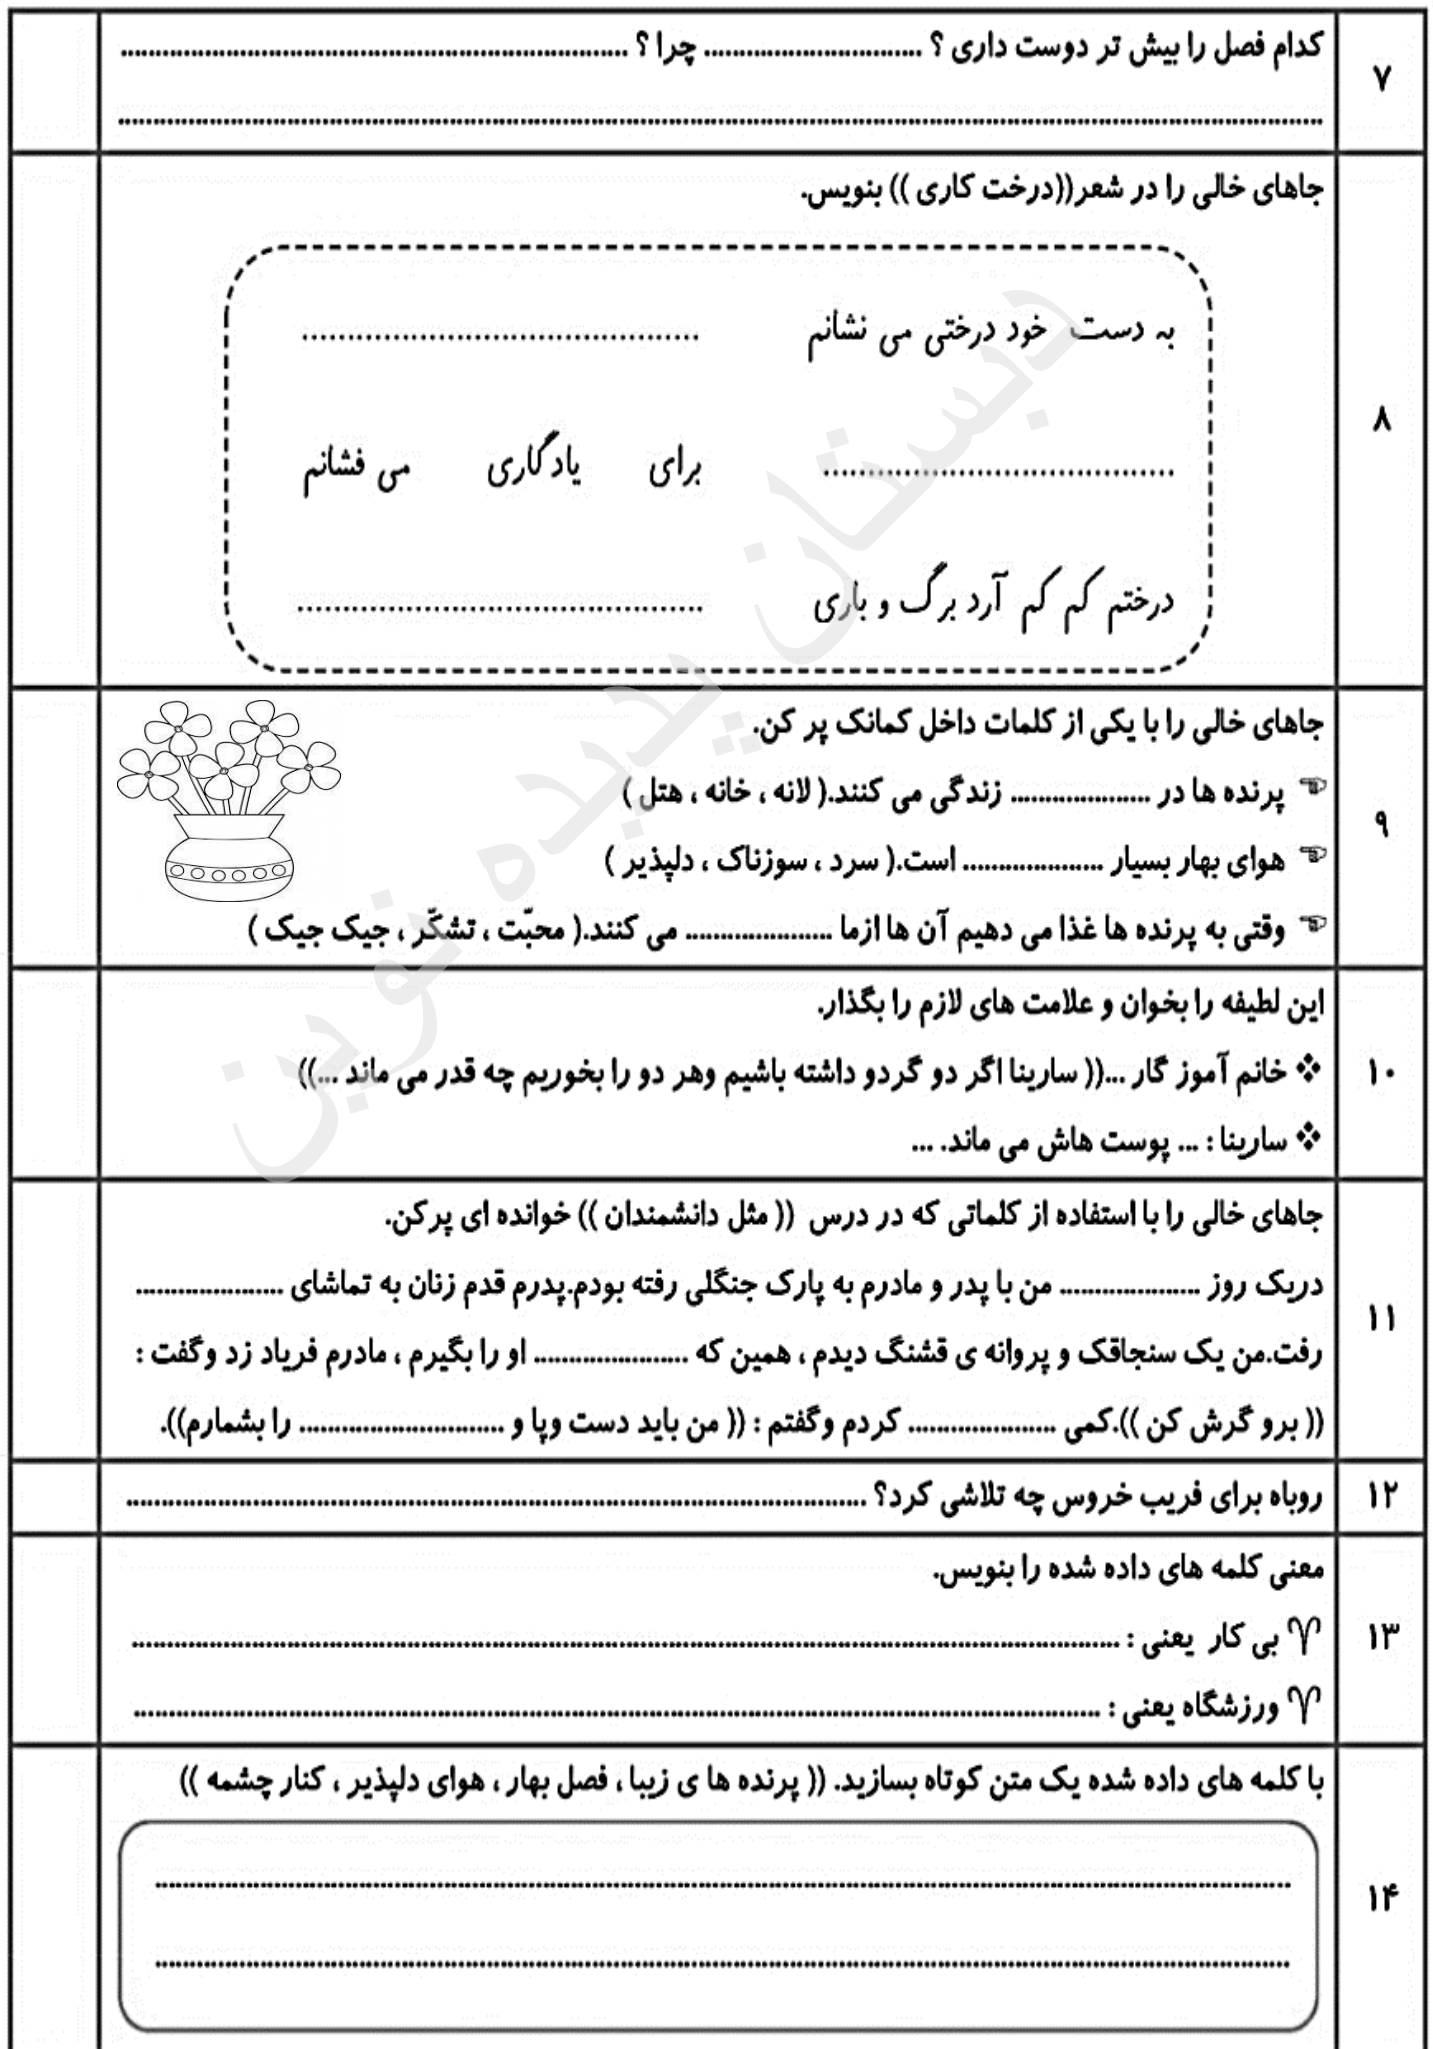 ۷
کدام فصل را بیش تر دوست داری ؟ ............................... چرا ؟ ........................................................................
..........................................................................................................................................................................
۸
جاهای خالی را در شعر((درخت کاری )) بنویس.
به دست خود درختی می نشانم ...........................................
....................................... برای یادگاری می فشانم
درختم کم کم آرد برگ و باری ...........................................
۹
جاهای خالی را با یکی از کلمات داخل کمانک پر کن.
☜ پرنده ها در .................... زندگی می کنند.( لانه ، خانه ، هتل )
☜ هوای بهار بسیار .................... است.( سرد ، سوزناک ، دلپذیر )
☜ وقتی به پرنده ها غذا می دهیم آن ها ازما ..................... می کنند.( محبّت ، تشکّر ، جیک جیک )
۱۰
این لطیفه را بخوان و علامت های لازم را بگذار.
❖ خانم آموز گار ...(( سارینا اگر دو گردو داشته باشیم وهر دو را بخوریم چه قدر می ماند ...))
❖ سارینا : ... پوست هاش می ماند. ...
۱۱
جاهای خالی را با استفاده از کلماتی که در درس (( مثل دانشمندان )) خوانده ای پرکن.
دریک روز .................... من با پدر و مادرم به پارک جنگلی رفته بودم.پدرم قدم زنان به تماشای .....................
رفت.من یک سنجاقک و پروانه ی قشنگ دیدم ، همین که ...................... او را بگیرم ، مادرم فریاد زد وگفت :
(( برو گرش کن )).کمی ..................... کردم وگفتم : (( من باید دست وپا و ............................. را بشمارم)).
۱۲
روباه برای فریب خروس چه تلاشی کرد؟ .........................................................................................................
۱۳
معنی کلمه های داده شده را بنویس.
♈ بی کار یعنی : ............................................................................................................................................
♈ ورزشگاه یعنی : .........................................................................................................................................
۱۴
با کلمه های داده شده یک متن کوتاه بسازید. (( پرنده ها ی زیبا ، فصل بهار ، هوای دلپذیر ، کنار چشمه ))
..........................................................................................................................................................................
..........................................................................................................................................................................
دبستان پدیده نوین